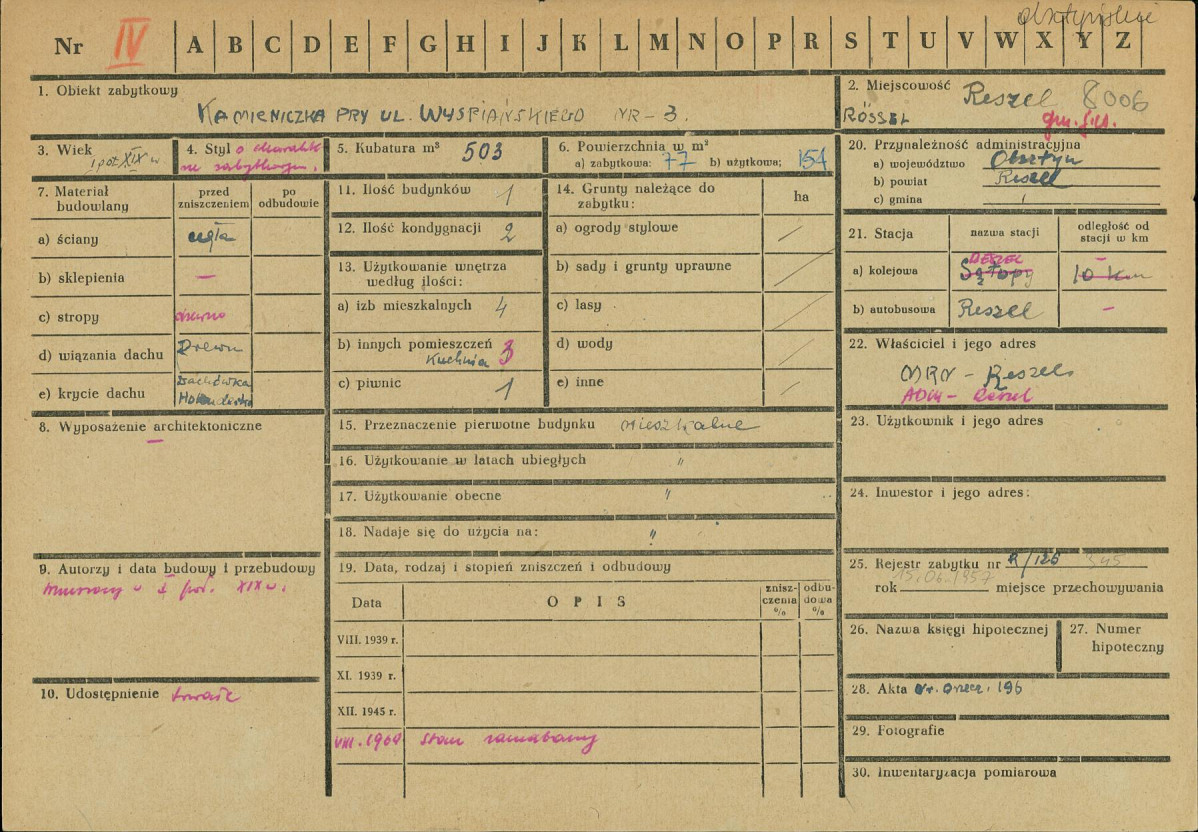 olsztyńskie
Nr IV A B C D E F G H I J K L M N O P R S T U V W X Y Z
1. Obiekt zabytkowy
KAMIENICZKA PRY UL. WYSPIAŃSKIEGO NR - 3.
2. Miejscowość Reszel 8006
RÖSSEL
3. Wiek
I poł XIX w.
4. Styl o charakt
zabytkowym.
5. Kubatura m³ 503
6. Powierzchnia w m²
a) zabytkowa: 77 b) użytkowa: 154
7. Materiał budowlany
przed zniszczeniem
po odbudowie
a) ściany cegła
b) sklepienia —
c) stropy drewno
d) wiązania dachu Drewn
e) krycie dachu Dachówka
Holenderska
8. Wyposażenie architektoniczne
—
9. Autorzy i data budowy i przebudowy
murowany w I poł. XIX w.
10. Udostępnienie trwałe
11. Ilość budynków 1
12. Ilość kondygnacji 2
13. Użytkowanie wnętrza
według ilości:
a) izb mieszkalnych 4
b) innych pomieszczeń
Kuchnia 3
c) piwnic 1
14. Grunty należące do
zabytku:
ha
a) ogrody stylowe /
b) sady i grunty uprawne /
c) lasy /
d) wody /
e) inne /
15. Przeznaczenie pierwotne budynku mieszkalne
16. Użytkowanie w latach ubiegłych "
17. Użytkowanie obecne "
18. Nadaje się do użycia na: "
19. Data, rodzaj i stopień zniszczeń i odbudowy
Data OPIS znisz-czenia % odbu-dowa %
VIII. 1939 r.
XI. 1939 r.
XII. 1945 r.
VIII. 1964 Stan zaniedbany
20. Przynależność administracyjna
a) województwo Olsztyn
b) powiat Reszel
c) gmina
21. Stacja
nazwa stacji
odległość od
stacji w km
RESZEL —
a) kolejowa Sątopy 10 km
b) autobusowa Reszel —
22. Właściciel i jego adres
MRN - Reszel
ADM - Reszel
23. Użytkownik i jego adres
24. Inwestor i jego adres:
25. Rejestr zabytku nr R/126 345
15.06.1957
rok miejsce przechowywania
26. Nazwa księgi hipotecznej
27. Numer
hipoteczny
28. Akta Nr. orzecz. 196
29. Fotografie
30. Inwentaryzacja pomiarowa